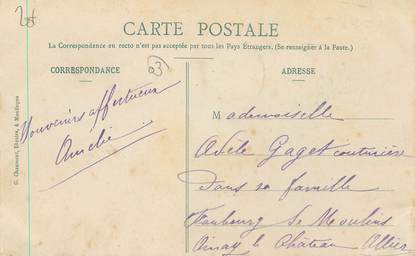 20f
CARTE POSTALE
La Correspondance au recto n'est pas acceptée par tous les Pays Étrangers. (Se renseigner à la Poste.)
CORRESPONDANCE
03
ADRESSE
Souvenirs affectueux
Amélie
Mademoiselle
Adèle Gaget couturière
dans sa famille
Faubourg de Moulins
Ainay le Château Allier
G. Chaumont, Libraire, à